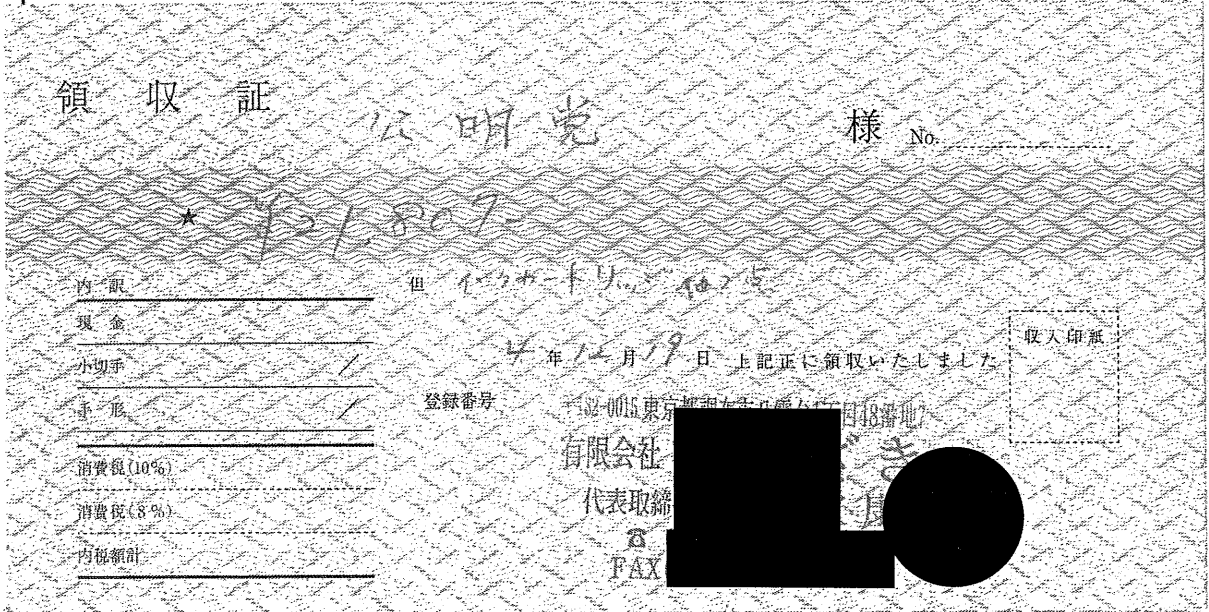 領 収 証
公明党 様 No.
★ ¥21,807-
内 訳
現 金
小切手 /
手 形 /
消費税(10%)
消費税(8%)
内税額計
但 インクカートリッジ 他2点
4 年 12 月 19 日 上記正に領収いたしました
収入印紙
登録番号
東京都調布市 目48番地7
有限会社
代表取締
☎
FAX